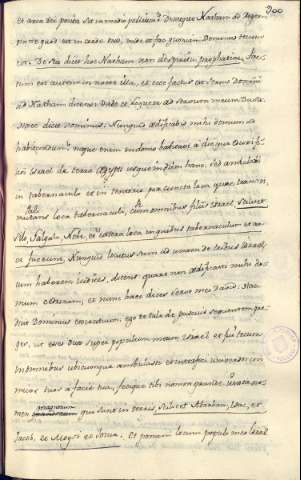 300
et arca Dei posita sit in medio pellium? Dixitque Nathan ad Regem
omne quod est in corde tuo, vade et fac, quoniam Dominus tecum
est. De sua dixit hoc Nathan non de spiritu prophetiae, factum
est autem in nocte illa, et ecce factus est sermo Domini
ad Nathan dicens: Vade et loquere ad servum meum David,
Haec dicit Dominus. Nunquid aedificabis mihi domum ad
habitandum? neque enim in domo habitavi à die qua eduxi filios
Israel de terra Aegypti usque in diem hanc, sed ambulabam
in tabernaculo et in tentorio per cuncta loca quae transivi,
mutans loca tabernaculi, cum omnibus filiis Israel, scilicet
Silo, Galgala, Nobe, et caetera loca in quibus tabernaculum et arca
fuerunt, Nunquid loquens sum ad unam de tribus Israel,
cum haberem iudices, dicens quare non aedificastis mihi domum
cedrinam, et nunc haec dices servo meo David. Haec
dicit Dominus exercituum ego te tuli de pascuis sequentem greges,
ut esses dux super populum meum Israel et fui tecum
in omnibus ubicunque ambulasti et interfeci universos inimicos
tuos a facie tua, fecique tibi nomen grande iuxta nomen
magnorum
qui sunt in terra, scilicet Abraham, Isaac, et
Jacob, et Moysi et Josue. Et ponam locum populo meo Israel